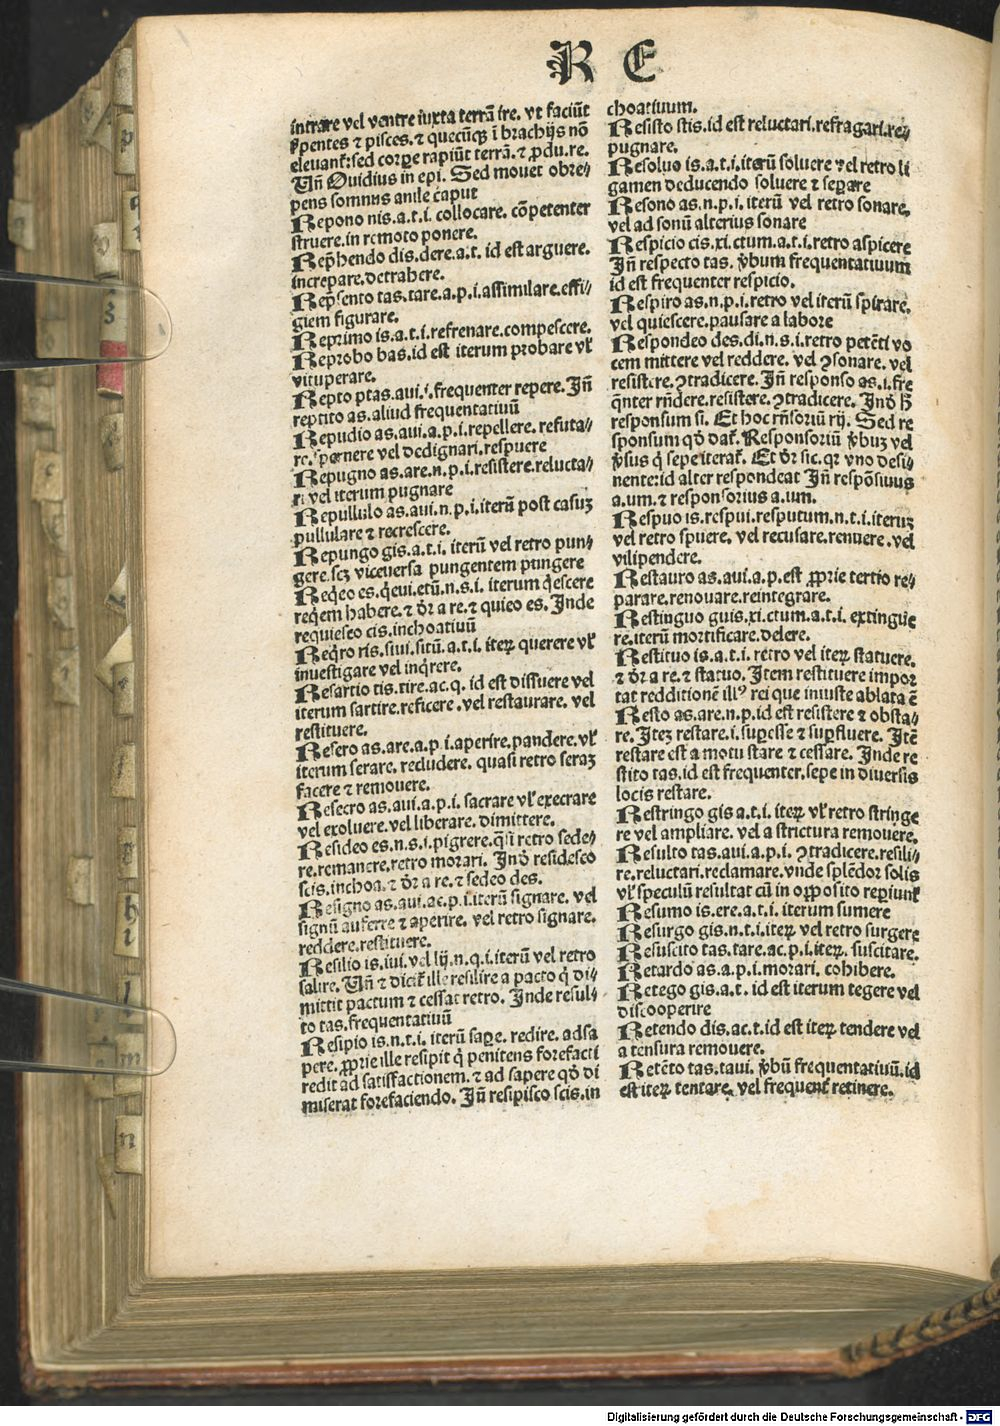 R E
intrare vel ventre iuxta terrã ire. vt faciũt
ſ̃pentes ⁊ pisces. ⁊ quecũqꝫ ĩ brachijs nõ
eleuant̃: sed corꝑe rapiũt terrã. ⁊ ꝓdu. re.
Vñ Ouidius in epi. Sed mouet obre⸗
pens somnus anile caput
Repono nis. a. t. i. collocare. cõpetenter
struere. in remoto ponere.
Rep̃hendo dis. dere. a. t. id est arguere.
increpare. detrahere.
Rep̃sento tas. tare. a. p. i. assimilare. effi⸗
giem figurare.
Reprimo is. a. t. i. refrenare. compescere.
Reprobo bas. id est iterum probare vł
vituperare.
Repto ptas. aui. i. frequenter repere. Jñ
reptito as. aliud frequentatiuũ
Repudio as. aui. a. p. i. repellere. refuta⸗
re. spernere vel dedignari. respuere
Repugno as. are. n. p. i. resistere. relucta⸗
ri vel iterum pugnare
Repullulo as. aui. n. p. i. iterũ post casuꝫ
pullulare ⁊ recrescere.
Repungo gis. a. t. i. iterũ vel retro pun⸗
gere. scꝫ viceuersa pungentem pungere
Req̃eo es. q̃eui. etũ. n. s. i. iterum q̃escere
req̃em habere. ⁊ dr̃ a re. ⁊ quieo es. Inde
requiesco cis. inchoatiuũ
Req̃ro ris. siui. sitũ. a. t. i. iteꝝ querere vł
inuestigare vel inq̃rere.
Resartio tis. tire. ac. q. id est dissuere vel
iterum sartire. reficere. vel restaurare. vel
restituere.
Resero as. are. a. p. i. aperire. pandere. vł
iterum serare. recludere. quasi retro seraꝫ
facere ⁊ remouere.
Resecro as. aui. a. p. i. sacrare vł execrare
vel exoluere. vel liberare. dimittere.
Resideo es. n. s. i. pigrere. q̃si retro sede⸗
re. remanere. retro morari. Jnđ residesco
scis. inchoa. ⁊ dr̃ a re. ⁊ sedeo des.
Resigno as. aui. ac. p. i. iterũ signare. vel
signũ auferre ⁊ aperire. vel retro signare.
reddere. restituere.
Resilio is. iui. vel lij. n. q. i. iterũ vel retro
salire. Vñ ⁊ dicit̃ ille resilire a pacto q̃ di⸗
mittit pactum ⁊ cessat retro. Inde resul⸗
to tas. frequentatiuũ
Resipio is. n. t. i. iterũ saꝑe. redire. ad sa
pere. ꝓprie ille resipit q̃ penitens forefacti
redit ad satisfactionem. ⁊ ad sapere qđ di
miserat forefaciendo. Jñ resipisco scis. in
choatiuum.
Resisto stis. id est reluctari. refragari. re⸗
pugnare.
Resoluo is. a. t. i. iterũ soluere vel retro li
gamen deducendo soluere ⁊ seꝑare
Resono as. n. p. i. iterũ vel retro sonare.
vel ad sonũ alterius sonare
Respicio cis. xi. ctum. a. t. i. retro aspicere
Jñ respecto tas. ṽbum frequentatiuum
id est frequenter respicio.
Respiro as. n. p. i. retro vel iterũ spirare.
vel quiescere. pausare a labore
Respondeo des. di. n. s. i. retro petẽti vo
cem mittere vel reddere. vel ꝯsonare. vel
resistere. ꝯtradicere. Jñ responso as. i. fre
q̃nter rñdere. resistere. ꝯtradicere. Jnđ h̃
responsum si. Et hoc rñsoriũ rij. Sed re
sponsum qđ dat̃. Responsoriũ ṽbuꝫ vel
ṽsus q̃ sepe iterat̃. Et dr̃ sic. qꝛ vno desi⸗
nente: id alter respondeat Jñ respõsiuus
a. um. ⁊ responsorius a. um.
Respuo is. respui. resputum. n. t. i. iteruꝫ
vel retro spuere. vel recusare. renuere. vel
vilipendere.
Restauro as. aui. a. p. est ꝓprie tertio re⸗
parare. renouare. reintegrare.
Restinguo guis. xi. ctum. a. t. i. extingue
re. iterũ mortificare. delere.
Restituo is. a. t. i. retro vel iteꝝ statuere.
⁊ dr̃ a re. ⁊ statuo. Item restituere impor
tat redditionẽ illiꝰ rei que iniuste ablata ẽ
Resto as. are. n. p. id est resistere ⁊ obsta⸗
re. Iteꝫ restare. i. suꝑesse ⁊ suꝑfluere. Itẽ
restare est a motu stare ⁊ cessare. Inde re
stito tas. id est frequenter. sepe in diuersis
locis restare.
Restringo gis a. t. i. iteꝝ vł retro stringe
re vel ampliare. vel a strictura remouere.
Resulto tas. aui. a. p. i. ꝯtradicere. resili⸗
re. reluctari. reclamare. vnde splẽdor solis
vł speculũ resultat cũ in opposito reꝑiunt̃
Resumo is. ere. a. t. i. iterum sumere
Resurgo gis. n. t. i. iteꝝ vel retro surgere
Resuscito tas. tare. ac. p. i. iteꝝ. suscitare.
Retardo as. a. p. i. morari. cohibere.
Retego gis. a. t. id est iterum tegere vel
discooperire
Retendo dis. ac. t. id est iteꝝ tendere vel
a tensura remouere.
Retẽto tas. taui. ṽbũ frequentatiuũ. id
est iteꝝ tentare. vel frequent̃ retinere.
3
h
i
l
m
n
Digitalisierung gefördert durch die Deutsche Forschungsgemeinschaft - DFG